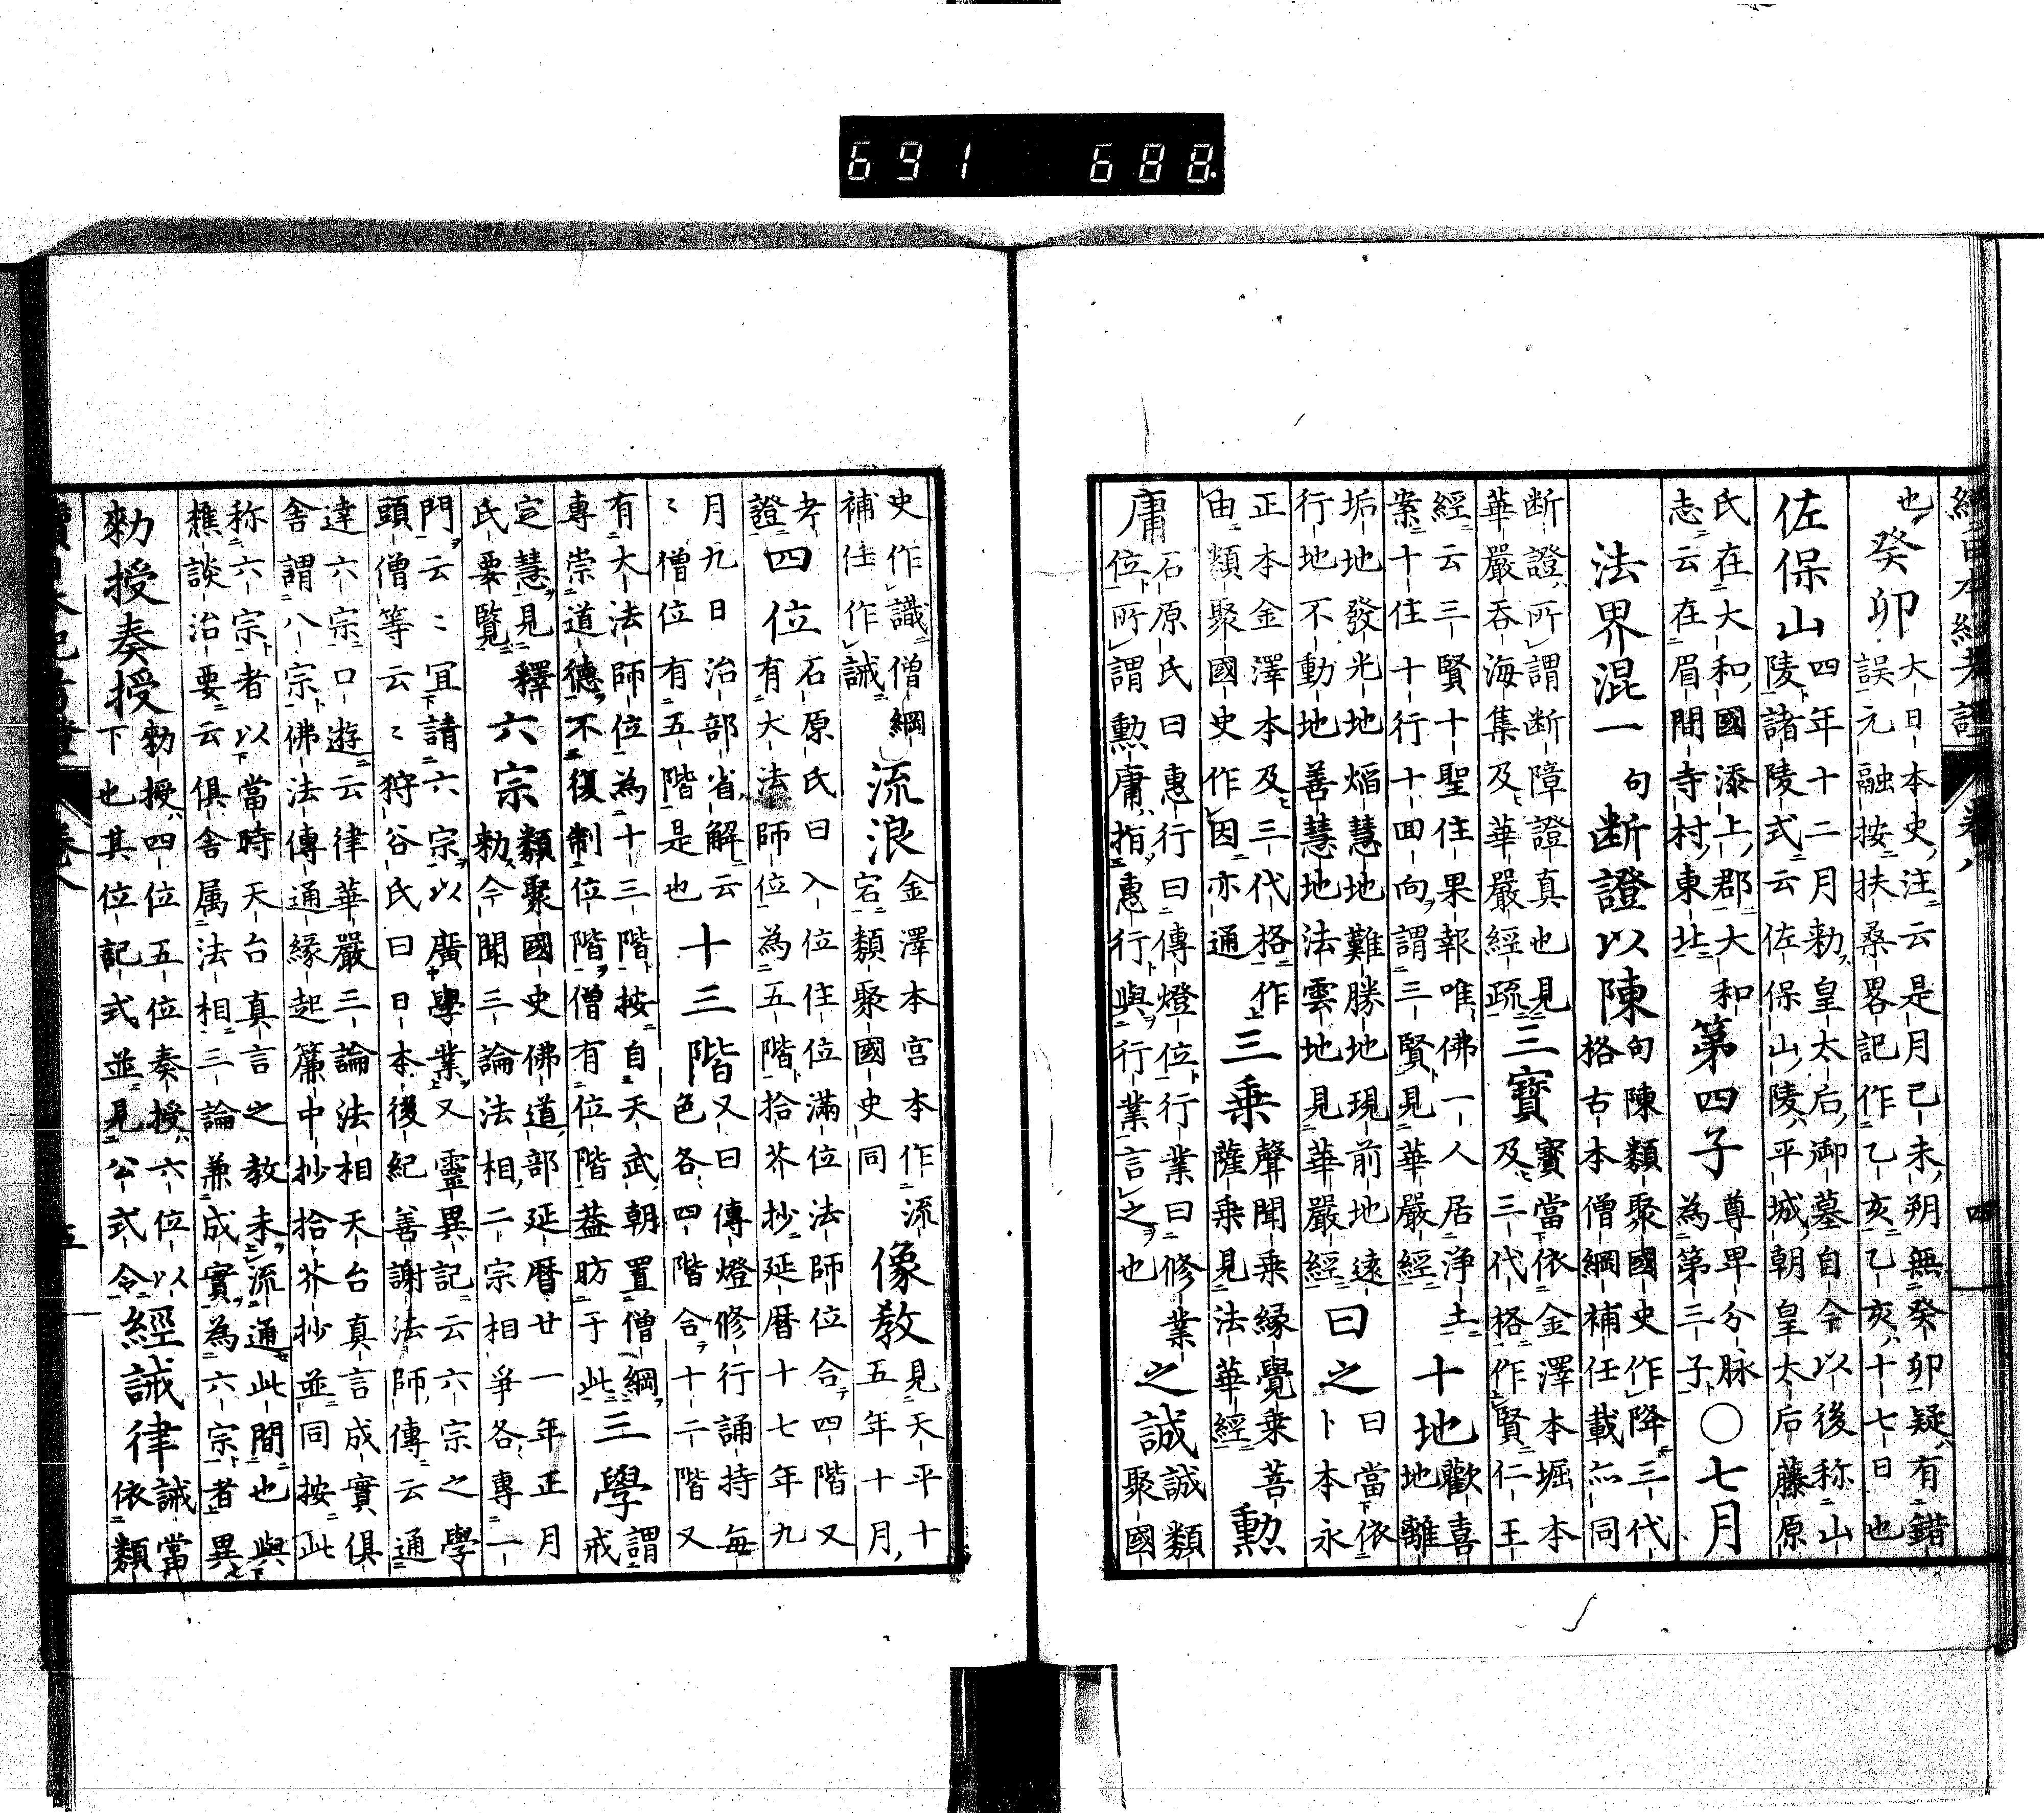 691 688
續日本紀考證 卷八 四
也癸卯大日本史注云是月己未朔無癸卯疑有錯
誤元融按扶桑畧記作乙亥乙亥十七日也
佐保山四年十二月勅皇太后御墓自今以後称山
陵諸陵式云佐保山陵平城朝皇太后藤原
氏在大和國添上郡大和
志云在眉間寺村東北第四子尊卑分脉
為第三子〇七月
法界混一句断證以陳句陳類聚國史作降三代
格古本僧綱補任載亦同
断證所謂断障證真也見
華嚴吞海集及華嚴經疏三寶寶當依金澤本堀本
及三代格作賢仁王
經云三賢十聖住果報唯佛一人居浄土
案十住十行十回向謂三賢見華嚴經十地歡喜
地離
垢地發光地焔慧地難勝地現前地遠
行地不動地善慧地法雲地見華嚴經曰之曰當依
卜本永
正本金澤本及三代格作
由類聚國史作因亦通三乗聲聞乗緣覺乗菩
薩乗見法華經勲
庸石原氏曰惠行曰傳燈位行業曰修業
位所謂勲庸指惠行與行業言之也之誠誠類
聚國
史作識僧綱
補任作誡流浪金澤本宮本作流
宕類聚國史同像教見天平十
五年十月
考
證四位石原氏曰入位住位滿位法師位合四階又
有大法師位為五階拾芥抄延暦十七年九
月九日治部省解云
〻僧位有五階是也十三階又曰傳燈修行誦持每
色各四階合十二階又
有大法師位為十三階按自天武朝置僧綱
專崇道德不復制位階僧有位階葢昉于此三學謂
戒
定慧見釋
氏要覧六宗類聚國史佛道部延暦廿一年正月
勅今聞三論法相二宗相爭各專一
門云〻宜請六宗以廣學業又靈異記云六宗之學
頭僧等云〻狩谷氏曰日本後紀善謝法師傳云通
達六宗口遊云律華嚴三論法相天台真言成實倶
舎謂八宗佛法傳通縁起簾中抄拾芥抄並同按此
称六宗者以當時天台真言之教未流通此間也與
樵談治要云倶舎属法相三論兼成實為六宗者異
勅授奏授勅授四位五位奏授六位以
下也其位記式並見公式令經誡律誡當
依類
續日本紀考證 卷八 五